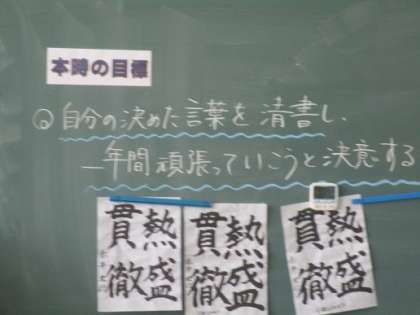 本時の目標
◎自分の決めた言葉を清書し、
一年間頑張っていこうと決意する
熱盛
貫徹
熱盛
貫徹
熱盛
貫徹